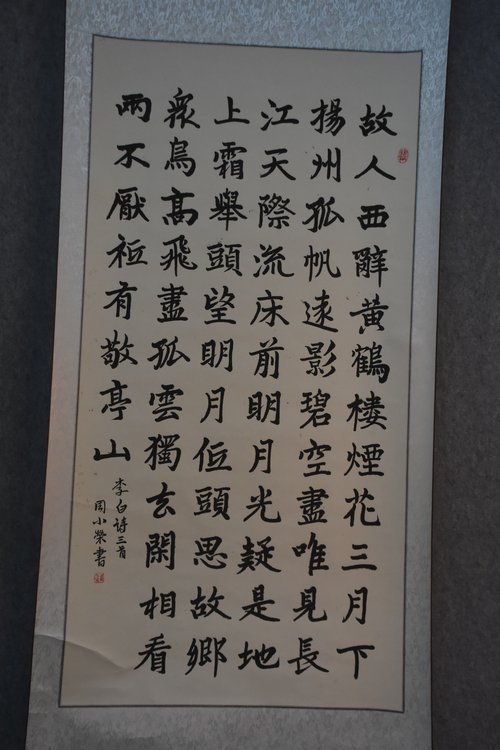 故人西辭黃鶴樓煙花三月下
揚州孤帆遠影碧空盡唯見長
江天際流床前明月光疑是地
上霜舉頭望明月低頭思故鄉
衆鳥高飛盡孤雲獨去閑相看
兩不厭衹有敬亭山
李白诗三首
周小榮書